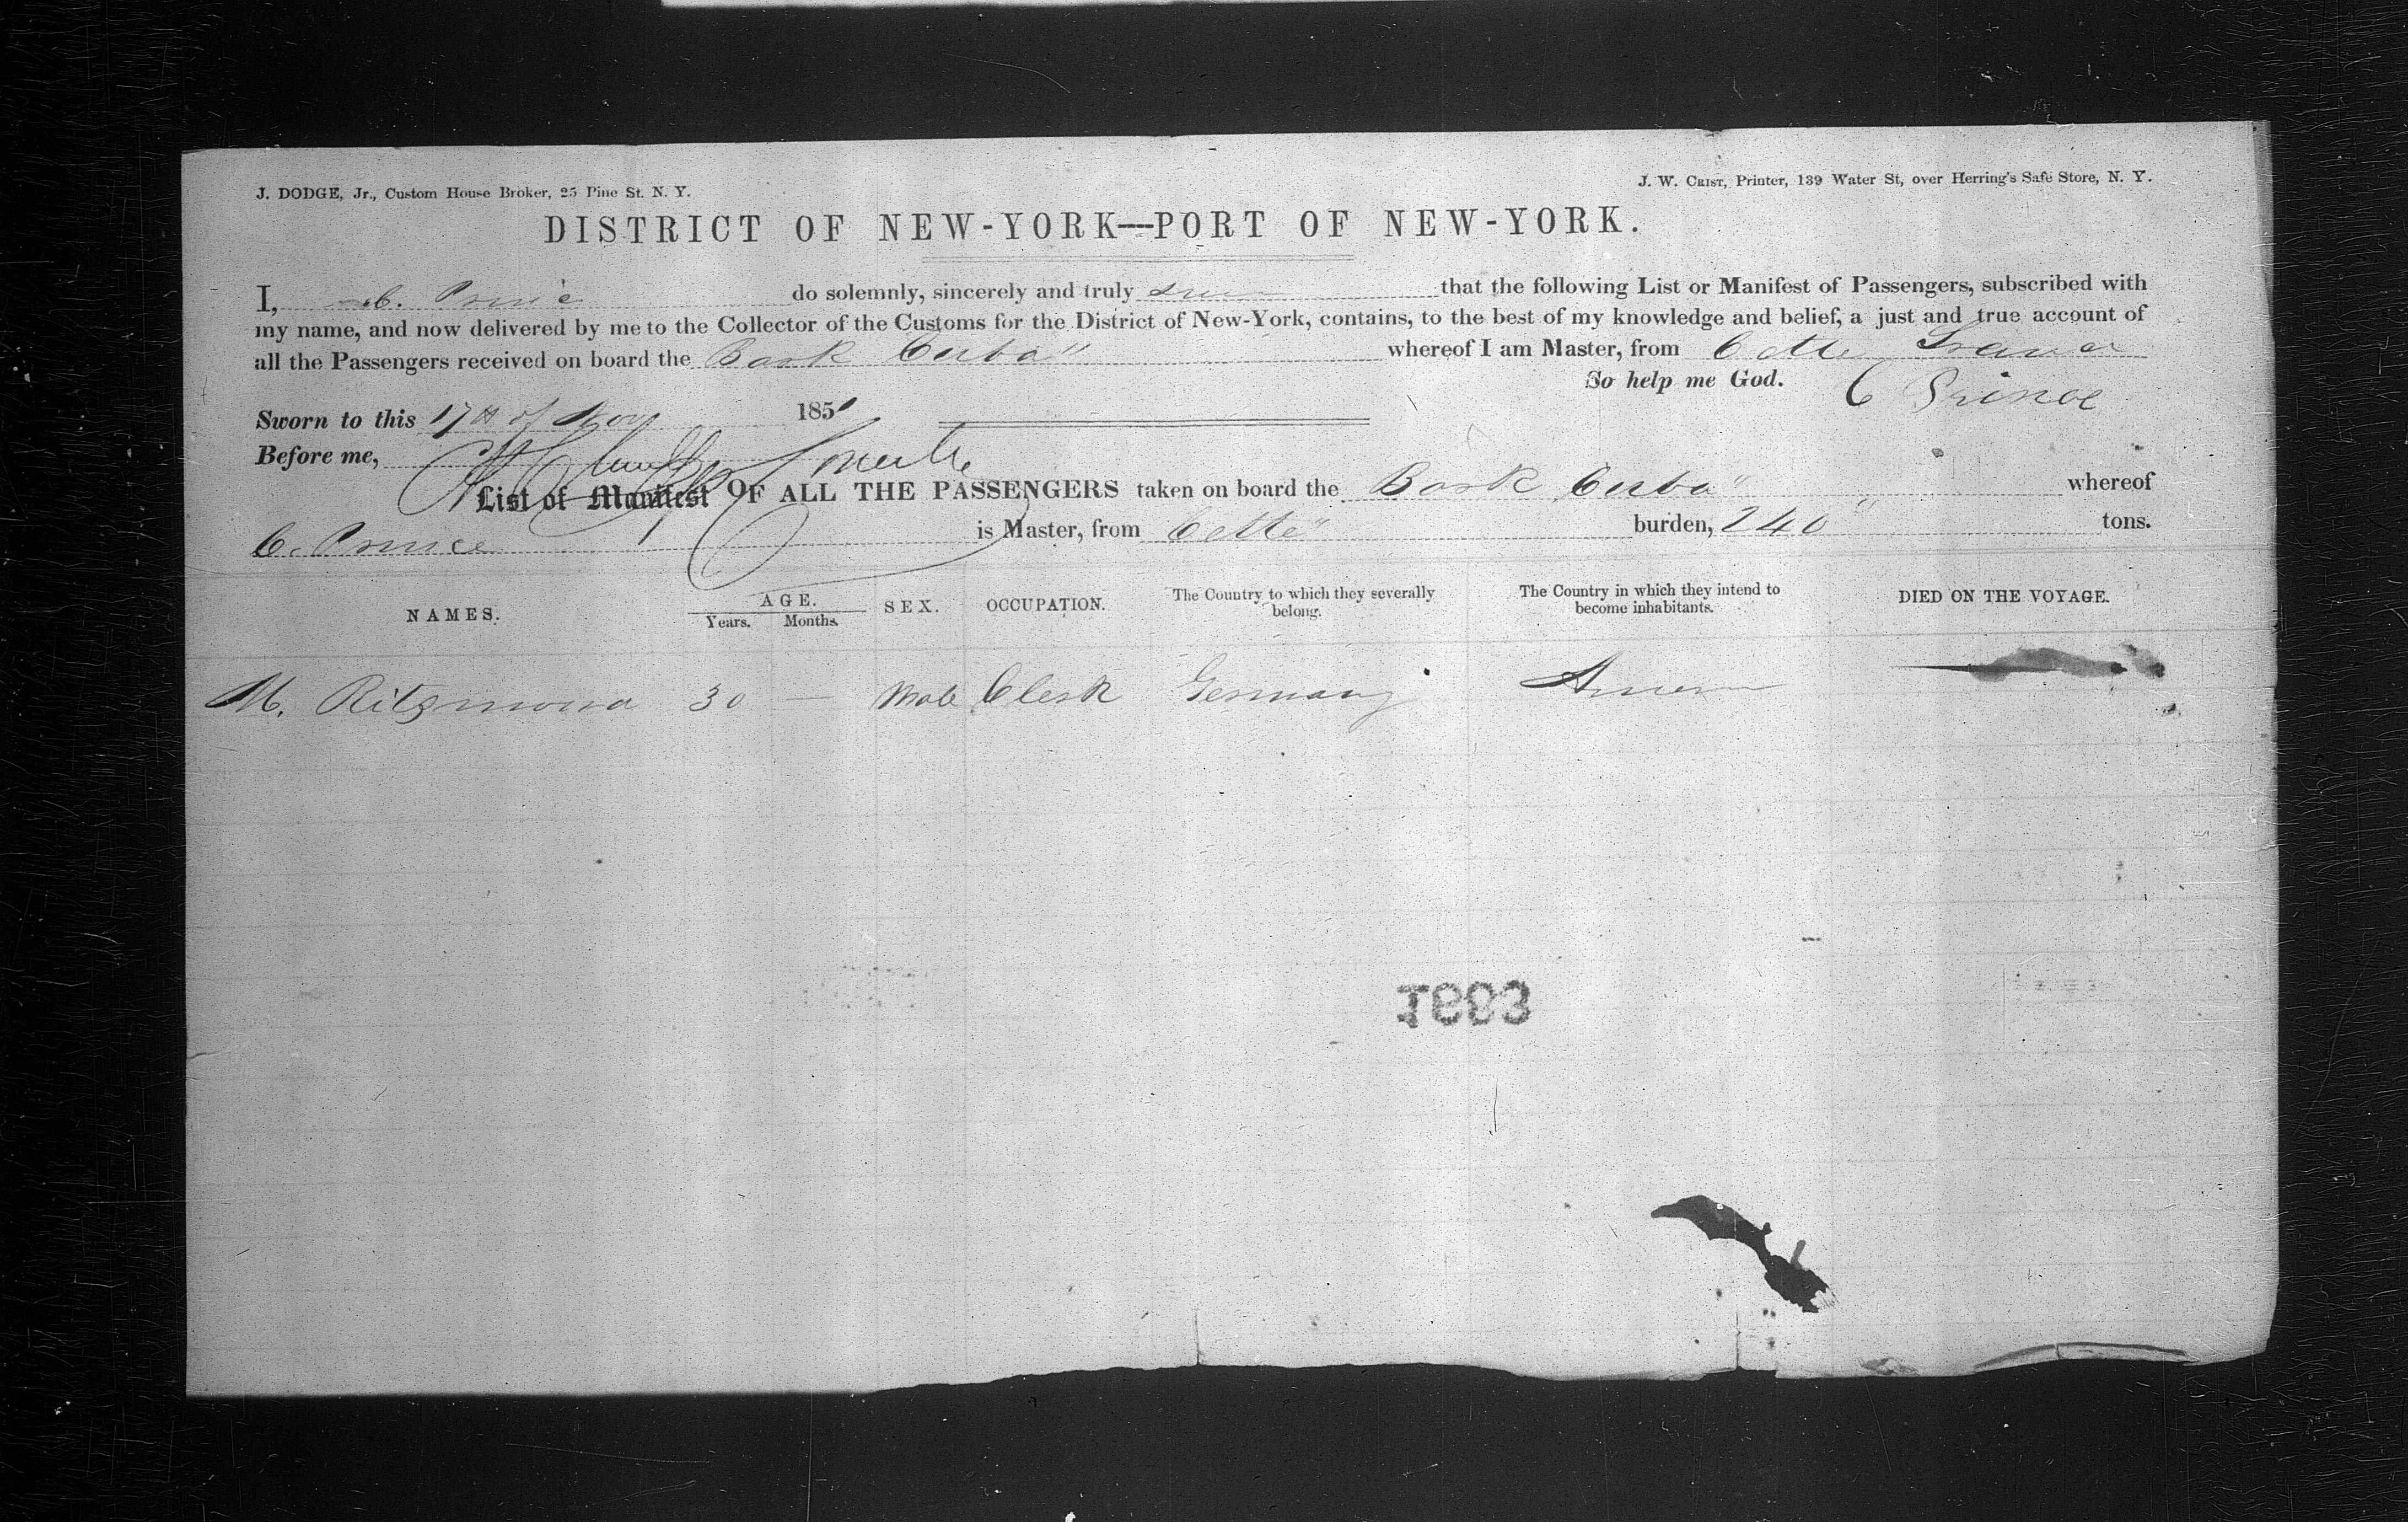 J. DODGE, Jr., Custom House Broker, 25 Pine St. N. Y.
J. W. CRIST, Printer, 139 Water St, over Herring's Safe Store, N. Y.
DISTRICT OF NEW-YORK—PORT OF NEW-YORK.
I, C. Prince do solemnly, sincerely and truly swear that the following List or Manifest of Passengers, subscribed with
my name, and now delivered by me to the Collector of the Customs for the District of New-York, contains, to the best of my knowledge and belief, a just and true account of
all the Passengers received on board the Bark Cuba" whereof I am Master, from Cette France
So help me God. C Prince
Sworn to this 17th of Nov 1851
Before me,
List of Manifest OF ALL THE PASSENGERS taken on board the Bark Cuba" whereof
C. Prince is Master, from Cette" burden, 240 tons.
NAMES. AGE. Years. Months. SEX. OCCUPATION. The Country to which they severally belong. The Country in which they intend to become inhabitants. DIED ON THE VOYAGE.
M. 30 — Male Clerk Germany